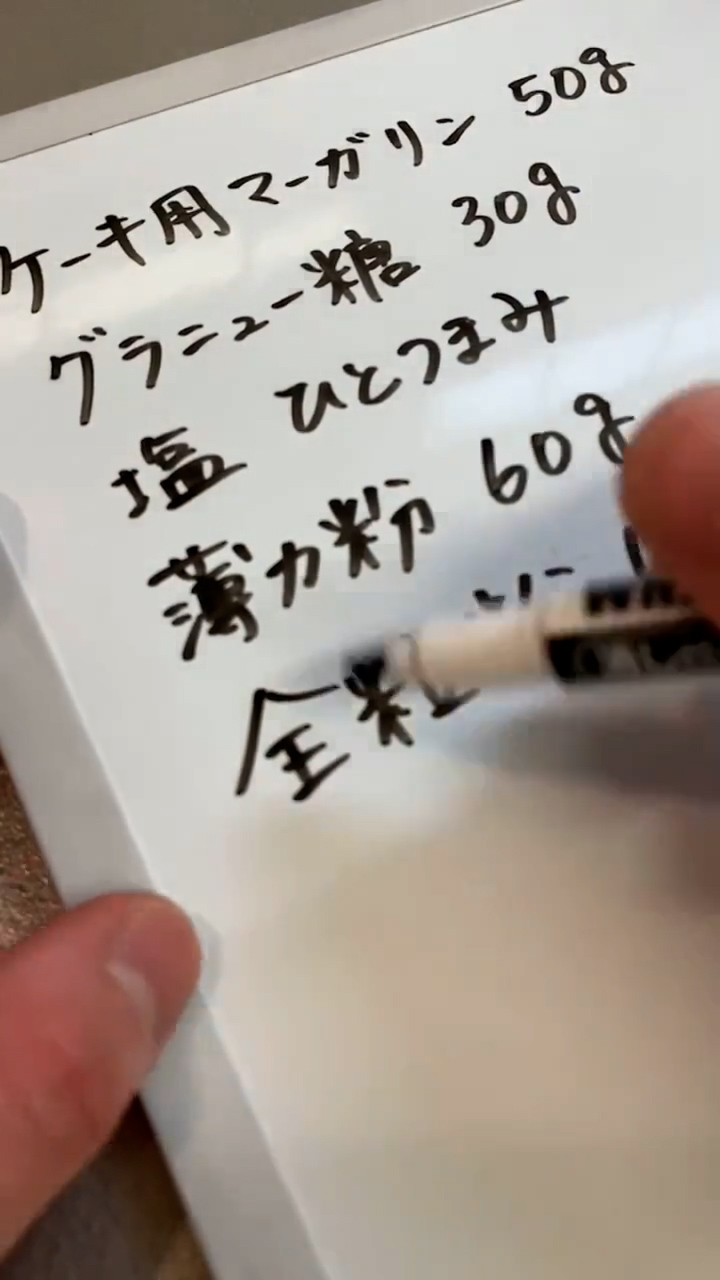 ケーキ用マーガリン 50g
グラニュー糖 30g
塩 ひとつまみ
薄力粉 60g
全粒